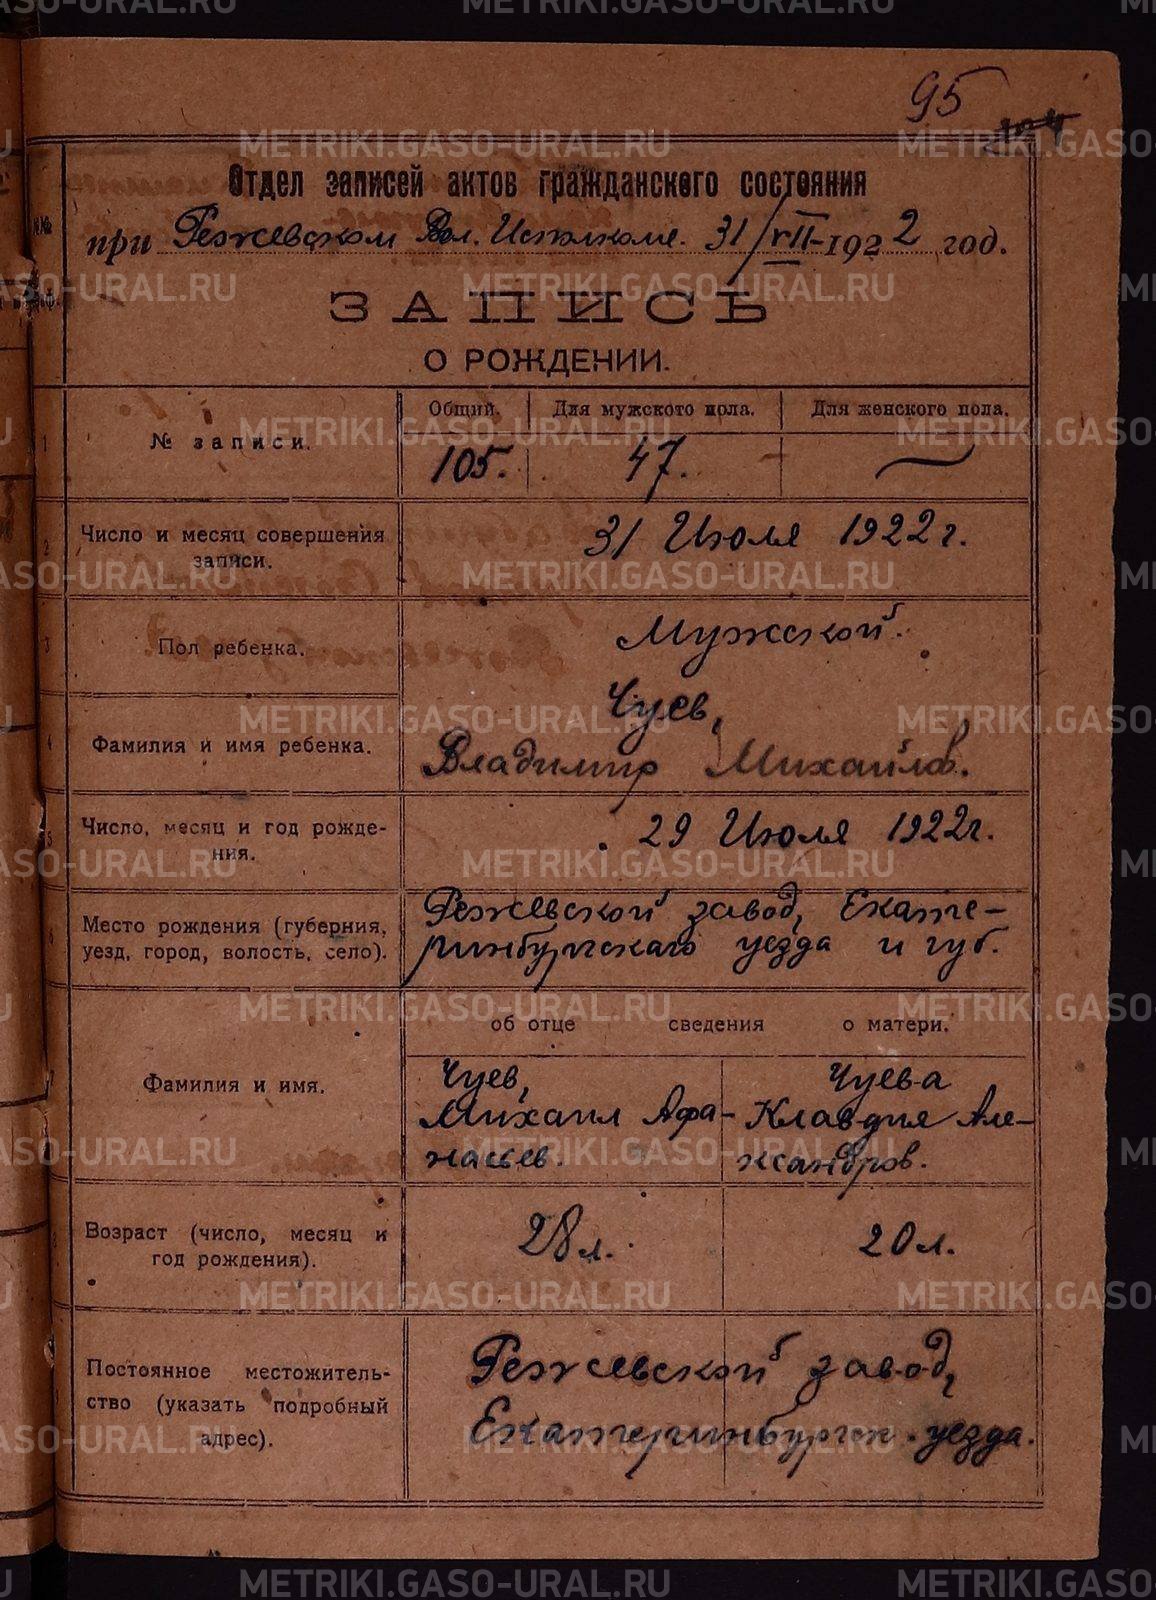 95
Отдел записей актов гражданского состояния
при Режевском Вол. Исполкоме. 31/VII-1922 год.
ЗАПИСЬ
О РОЖДЕНИИ.
Общий. Для мужского пола. Для женского пола.
1 № записи. 105. 47. —
2 Число и месяц совершения
записи.
31 Июля 1922 г.
3 Пол ребенка. Мужской.
4 Фамилия и имя ребенка.
Чуев,
Владимир Михайлов.
5 Число, месяц и год рожде-
ния.
29 Июля 1922г.
6 Место рождения (губерния,
уезд, город, волость, село).
Режевской завод, Екате-
ринбургскаго уезда и губ.
об отце сведения о матери.
7 Фамилия и имя.
Чуев,
Михаил Афа-
насьев.
Чуева
Клавдия Але-
ксандров.
8 Возраст (число, месяц и
год рождения).
28 л. 20 л.
Постоянное местожитель-
ство (указать подробный
адрес).
Режевской завод,
Екатеринбургск. уезда.
METRIKI.GASO-URAL.RU